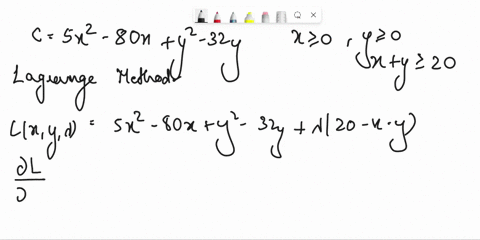 C = 5x² - 80x + y² - 32y    x ≥ 0 , y ≥ 0
x + y ≥ 20
Lagrange Method
L(x, y, λ) = 5x² - 80x + y² - 32y + λ(20 - x - y)
∂L
∂